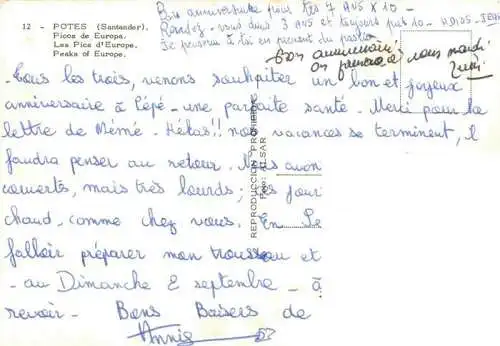 12 - POTES (Santander).
Picos de Europa.
Les Pics d'Europe.
Peaks of Europe.
Bon anniversaire pour tes 7 ANS X 10 -
Rendez-vous dans 3 ANS et toujours
Je penserai à toi en prenant du pastis
Bon anniversaire
on pensera à vous mardi
REPRODUCCION PROHIBIDA
Tous les trois, venons souhaiter un bon et joyeux
anniversaire à Pépé - une parfaite santé. Merci pour la
lettre de Mémé. Hélas!! nos vacances se terminent, il
faudra penser au retour. Nous avon
couverts, mais très lourds; les jour
chaud - comme chez vous. En Se
falloir préparer mon trousseau et
- au Dimanche 2 septembre - à
revoir - Bons Baisers de
Annie